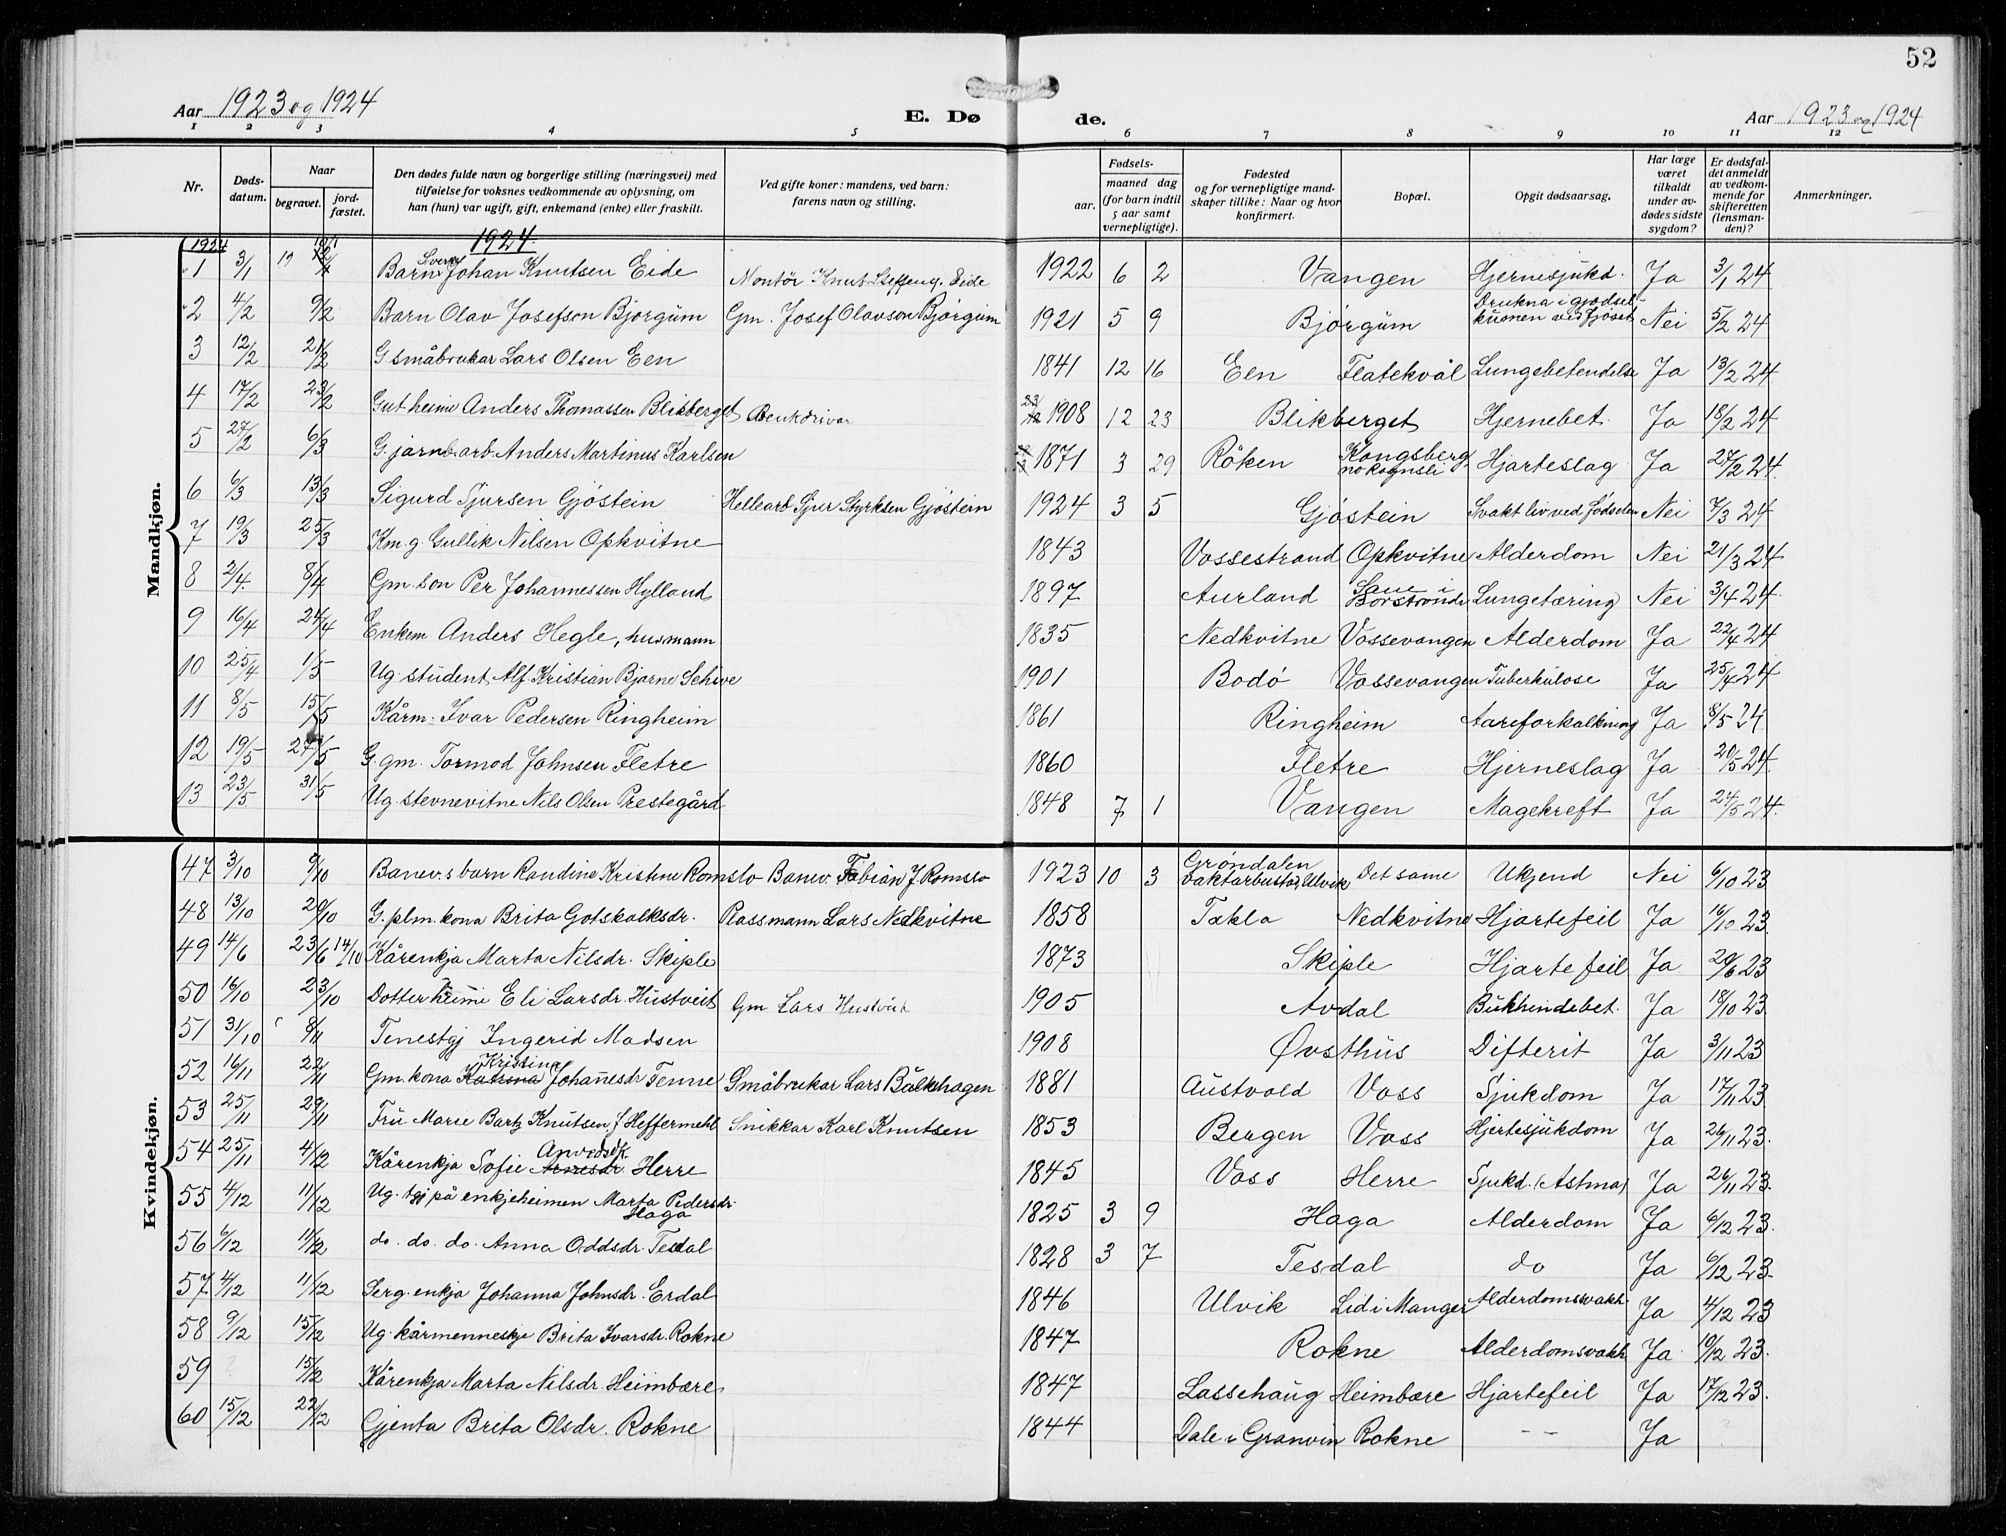 52
Aar 1923 og 1924 E. Dø de. Aar 1923 og 1924
1 2 3 4 5 6 7 8 9 10 11 12
Nr. Døds-datum. Naar begravet. jord-fæstet. Den dødes fulde navn og borgerlige stilling (næringsvei) med tilføielse for voksnes vedkommende av oplysning, om han (hun) var ugift, gift, enkemand (enke) eller fraskilt. Ved gifte koner: mandens, ved barn: farens navn og stilling. Fødsels- aar. maaned dag (for barn indtil 5 aar samt vernepligtige). Fødested og for vernepligtige mandskaper tillike: Naar og hvor konfirmert. Bopæl. Opgit dødsaarsag. Har læge været tilkaldt under avdødes sidste sygdom? Er dødsfaldet anmeldt av vedkommende for skifteretten (lensmanden)? Anmerkninger.
1924 1924.
Mandkjøn.
1 3/1 Barn Sverre Johan Knutsen Eide Montör Knut Steffens. Eide 1922 6 2 Vangen Hjernesjukd. Ja 3/1 24
2 4/2 9/2 Barn Olav Josefson Bjørgum Gm. Josef Olavson Bjørgum 1921 5 9 Bjørgum Drukna i gjødselkummen ved fjøset Nei 5/2 24
3 12/2 21/2 G småbrukar Lars Olsen Een 1841 12 16 Een Flatekvål Lungebetendelse Ja 13/2 24
4 17/2 23/2 Gut heime Anders Thomassen Blikberget Bruksdrivar 1908 12 23 Blikberget Hjernebet. Ja 18/2 24
5 27/2 6/3 G. jarnb.arb. Anders Martinus Karlsen 1871 3 29 Röken Kongsberg Hjarteslag Ja 27/2 24
6 6/3 13/3 Sigurd Sjursen Gjøstein Hellearb Sjur Styrksen Gjøstein 1924 3 5 Gjøstein Svakt liv ved fødselen Nei 7/3 24
7 19/3 25/3 Km. g. Gullik Nilsen Opkvitne 1843 Vossestrand Opkvitne Alderdom Nei 21/3 24
8 2/4. 8/4 Gm. son Per Johannessen Hylland 1897 Aurland Sane i Borstrondi Lungetæring Nei 3/4 24
9 16/4 24/4 Enkem Anders Hegle, husmann 1835 Nedkvitne Vossevangen Alderdom Ja 22/4 24
10 25/4 1/5 Ug. student Alf Kristian Bjarne Schive 1901 Bodö Vossevangen Tuberkulose Ja 25/4 24
11 8/5 15/5 Kårm. Ivar Pedersen Ringheim 1861 Ringheim Aareforkalkning Ja 8/5 24
12 19/5 27/5 G. gm. Tormod Johnsen Fletre 1860 Fletre Hjerneslag Ja 20/5 24.
13 23/5 31/5 Ug. stevnevitne Nils Olsen Prestegård 1848 7 1 Vangen Magekreft Ja 24/5 24.
Kvindekjøn.
47 3/10 9/10 Banev.s barn Randine Kristine Romslo Banev. Fabian J. Romslo 1923 10 3 Grøndalen vaktarbustad, Ulvik Det same Ukjend Nei 6/10 23
48 13/10 20/10 G. plm. kona Brita Gotskalksdr. Plassmann Lars Nedkvitne 1858 Takla Nedkvitne Hjartefeil Ja 16/10 23
49 14/6 23/6 14/10 Kårenkja Marta Nilsdr. Skiple 1873 Skiple Hjartefeil Ja 20/6 23
50 16/10 23/10 Dotter heime Eli Larsdr Hustveit Gm Lars Hustveit 1905 Avdal Bukhindebet. Ja 18/10 23
51 31/10 8/11 Tenestgj Ingerid Madsen 1908 Øvsthus Difterit Ja 3/11 23
52 16/11 22/11 Gm. kona Katrina Kristina Johanesdr Tenne Småbrukar Lars Bålkhagen 1881 Austvold Voss Sjukdom Ja 17/11 23
53 25/11 29/11 Fru Marie Bartz Knutsen f Heffermehl Snikkar Karl Knutsen 1853 Bergen Voss Hjertesjukdom Ja 26/11 23.
54 25/11 4/12 Kårenkja Sofie Arnesdr Arvidsdr. Herre 1845 Voss Herre Sjukd. (Astma) Ja 26/11 23.
55 4/12 11/12 Ug. tgj på enkjeheimen Marta Pedersdr. Haga 1825 3 9 Haga Alderdom Ja 6/12 23.
56 6/12 11/12 do. do. do. Anna Oddsdr Tesdal 1828 3 7 Tesdal do Ja 6/12 23.
57 4/12 11/12 Serg. enkja Johanna Johnsdr. Erdal 1846 Ulvik Lid i Manger Alderdomsvakh. Ja 4/12 23
58 9/12 15/12 Ug. kårmenneskje Brita Ivarsdr. Rokne 1847 Rokne Alderdomsvakh Ja 10/12 23.
59 15/12 Kårenkja Marta Nilsdr Heimbære 1847 Lassehaug Heimbære Hjartefeil Ja 17/12 23.
60 15/12 22/12 Gjenta Brita Olsdr. Rokne 1844 Dale i Granvin Rokne -- Ja